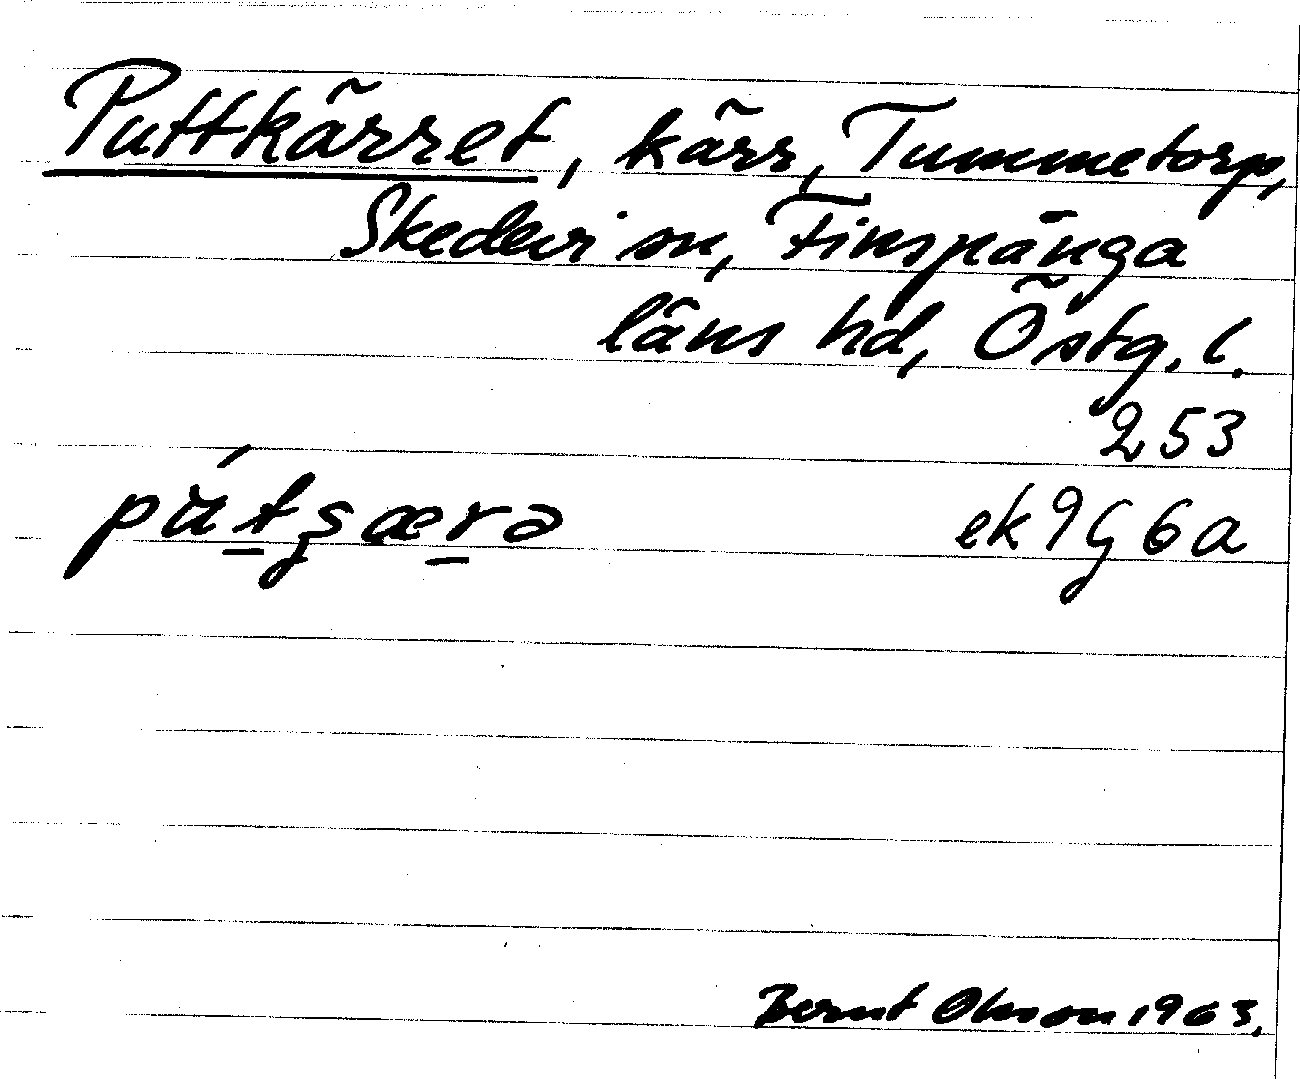 Puttkärret, kärr, Tummetorp,
Skedevi sn, Finspånga
läns hd, Östg. l.
253
ek 9G 6a
Bernt Olsson 1963.